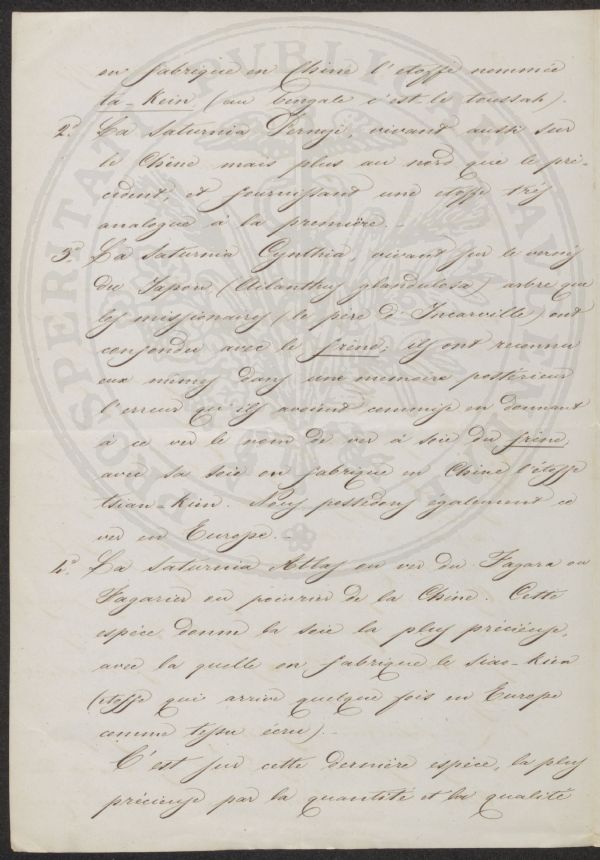 en fabrique en Chine l'etoffe nommée
ta-Kein (au Bengale c'est le toussah).
2º. La Saturnia Pernyi, vivant aussi sur
le Chêne mais plus au nord que le pré-
cédent, et fournissant une etoffe très
analogue à la première._
3º La Saturnia Cynthia, vivant sur le vernis
du Japon (Ailanthus glandulosa) arbre que
les missionaires (le père d'Incarville) ont
confondu avec le frêne; ils ont reconnu
eux mêmes dans une memoire postérieur
l'erreur qu'ils avaient commise en donnant
à ce ver le nom de ver à soie du frêne,
avec sa soie on fabrique en Chine l'étoffe
tsian-Kien. Nous possedons également ce
ver en Europe._
4º. La Saturnia Atlas ou ver du Fagara ou
Fagarier ou poivrier de la Chine. Cette
espèce donne la soie la plus précieuse,
avec la quelle on fabrique le siao-Kien
(étoffe qui arrive quelque fois en Europe
comme tissu écru)._
C'est sur cette dernière espèce, la plus
précieuse par la quantité et la qualité
PROSPERITATI PVBLICAE